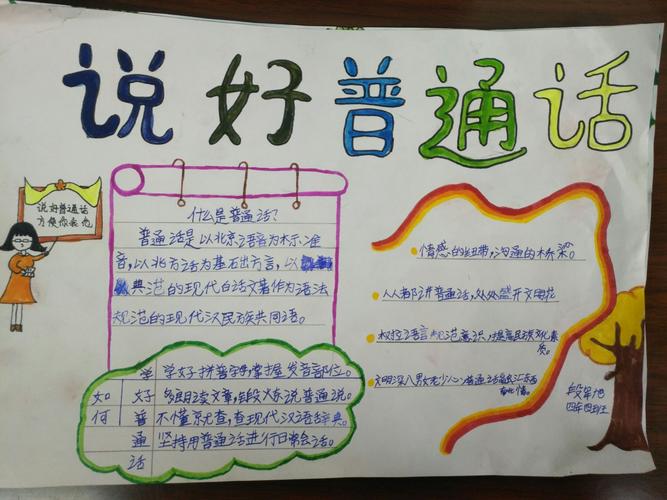 说好普通话
说好普通话
方便你我他
什么是普通话?
普通话是以北京语音为标准
音,以北方话为基础方言,以
典范的现代白话文著作为语法
规范的现代汉民族共同语。
如何
学好普通话
学好拼音字母掌握发音部位。
多朗读文章,锻炼说普通话。
不懂就查,查现代汉语辞典。
坚持用普通话进行日常会话。
情感的纽带,沟通的桥梁。
人人都讲普通话,处处盛开文明花
树立语言规范意识,提高民族文化素
质。
文明深入男女老少心
四年四班